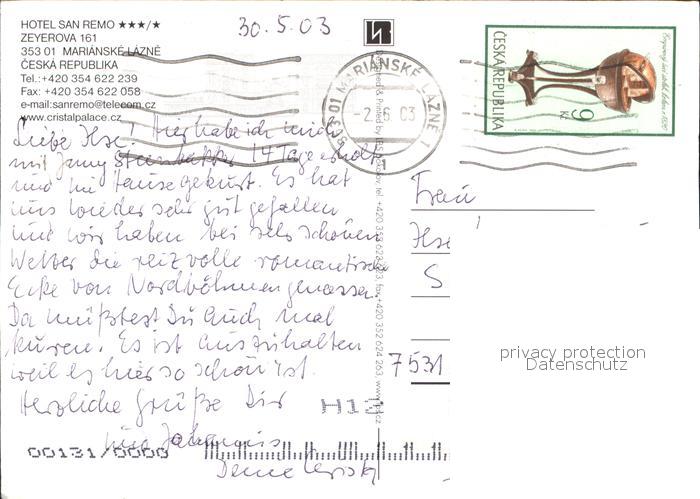 HOTEL SAN REMO ★★★/★
ZEYEROVA 161
353 01 MARIÁNSKÉ LÁZNĚ
ČESKÁ REPUBLIKA
Tel.:+420 354 622 239
Fax: +420 354 622 058
e-mail:sanremo@telecom.cz
www.cristalpalace.cz
30.5.03
Liebe Ilse! Hier habe ich mich
mit 14 Tage erholt
und gekurt. Es hat
uns wieder sehr gut gefallen
und wir haben bei sehr schönem
Wetter die reizvolle romantische
Ecke von Nordböhmen genossen.
Da müßtest Du auch mal
kuren. Es ist auszuhalten
weil es hier so schön ist.
Herzliche Grüße Dir
und
Deine
00131/0000
353 01 MARIÁNSKÉ LÁZNĚ 1
03
ČESKÁ REPUBLIKA
9 Kč
Frau
Ilse
S
7531
privacy protection
Datenschutz